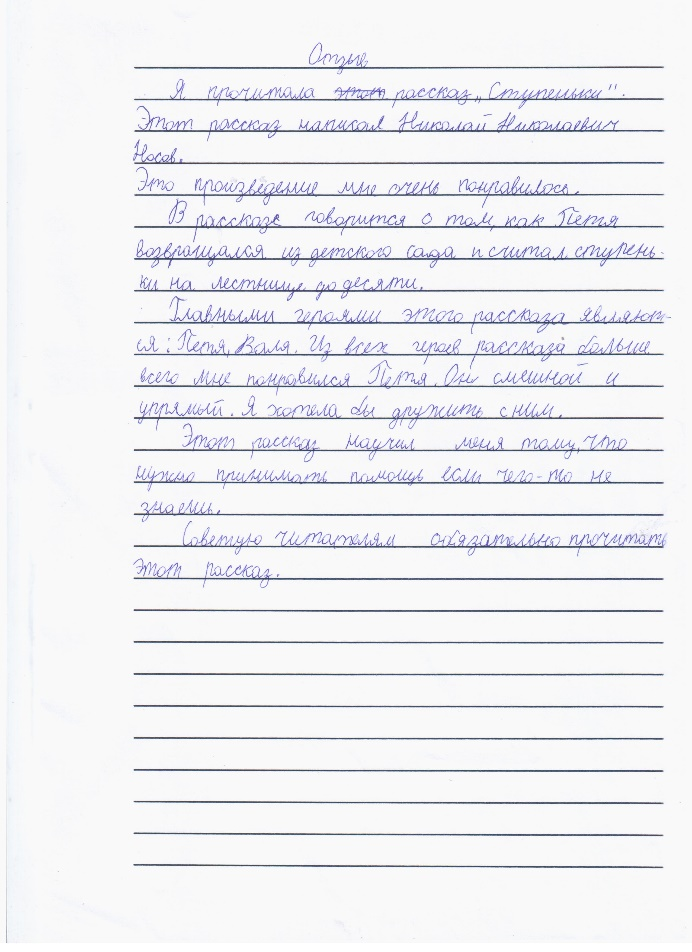 Отзыв
Я прочитала этот рассказ „Ступеньки".
Этот рассказ написал Николай Николаевич
Носов.
Это произведение мне очень понравилось.
В рассказе говорится о том, как Петя
возвращался из детского сада и считал ступень-
ки на лестнице до десяти.
Главными героями этого рассказа являют-
ся: Петя, Валя. Из всех героев рассказа больше
всего мне понравился Петя. Он смешной и
упрямый. Я хотела бы дружить с ним.
Этот рассказ научил меня тому, что
нужно принимать помощь если чего-то не
знаешь.
Советую читателям обязательно прочитать
этот рассказ.